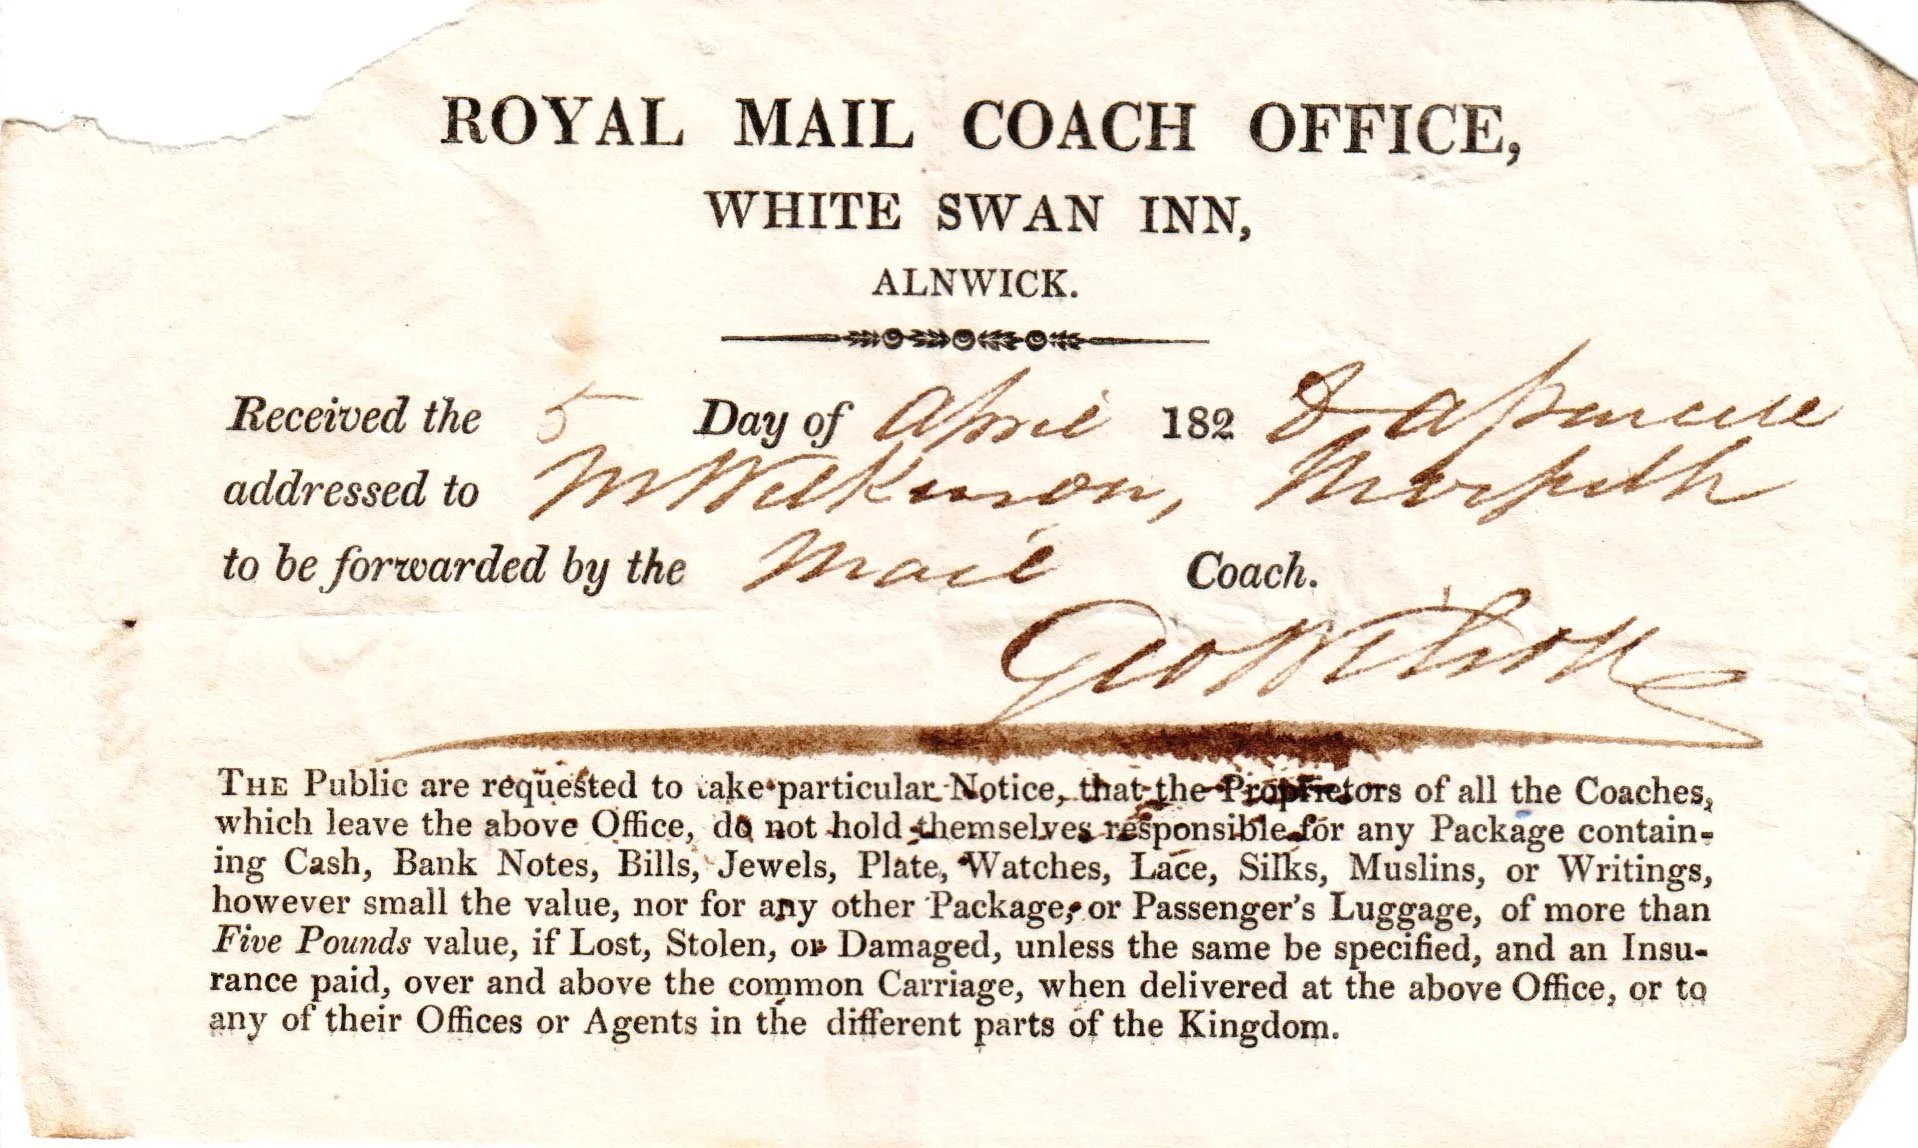 ROYAL MAIL COACH OFFICE,
WHITE SWAN INN,
ALNWICK.
Received the 5 Day of April 182 8 a parcell
addressed to Mr Wilkinson, Morpeth
to be forwarded by the Mail Coach.
Geo Wilson
THE Public are requested to take particular Notice, that the Proprietors of all the Coaches,
which leave the above Office, do not hold themselves responsible for any Package contain-
ing Cash, Bank Notes, Bills, Jewels, Plate, Watches, Lace, Silks, Muslins, or Writings,
however small the value, nor for any other Package, or Passenger's Luggage, of more than
Five Pounds value, if Lost, Stolen, or Damaged, unless the same be specified, and an Insu-
rance paid, over and above the common Carriage, when delivered at the above Office, or to
any of their Offices or Agents in the different parts of the Kingdom.